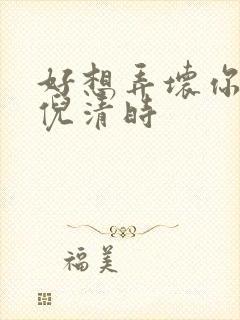 好想弄壞你
倪清時
福美